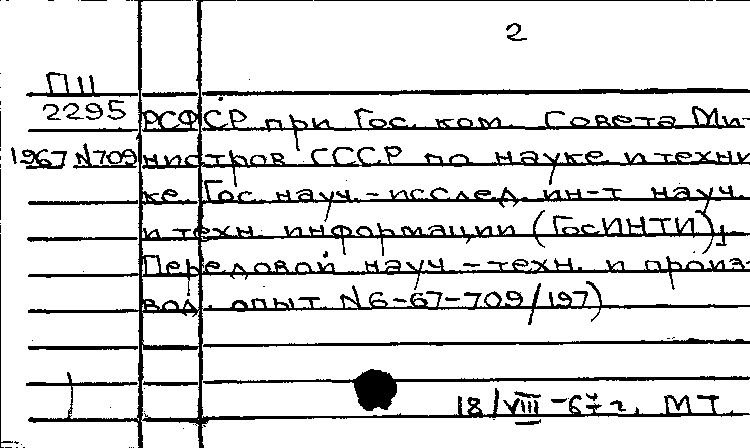 2
П11
2295 РСФСР при Гос. ком. Совета Ми-
1967 N709 нистров СССР по науке и техни
ке. Гос. науч.-исслед. ин-т науч.
и техн. информации (ГосИНТИ),
Передовой науч.-техн. и произ-
вод. опыт N6-67-709/197)
18/VIII-67г. МТ.